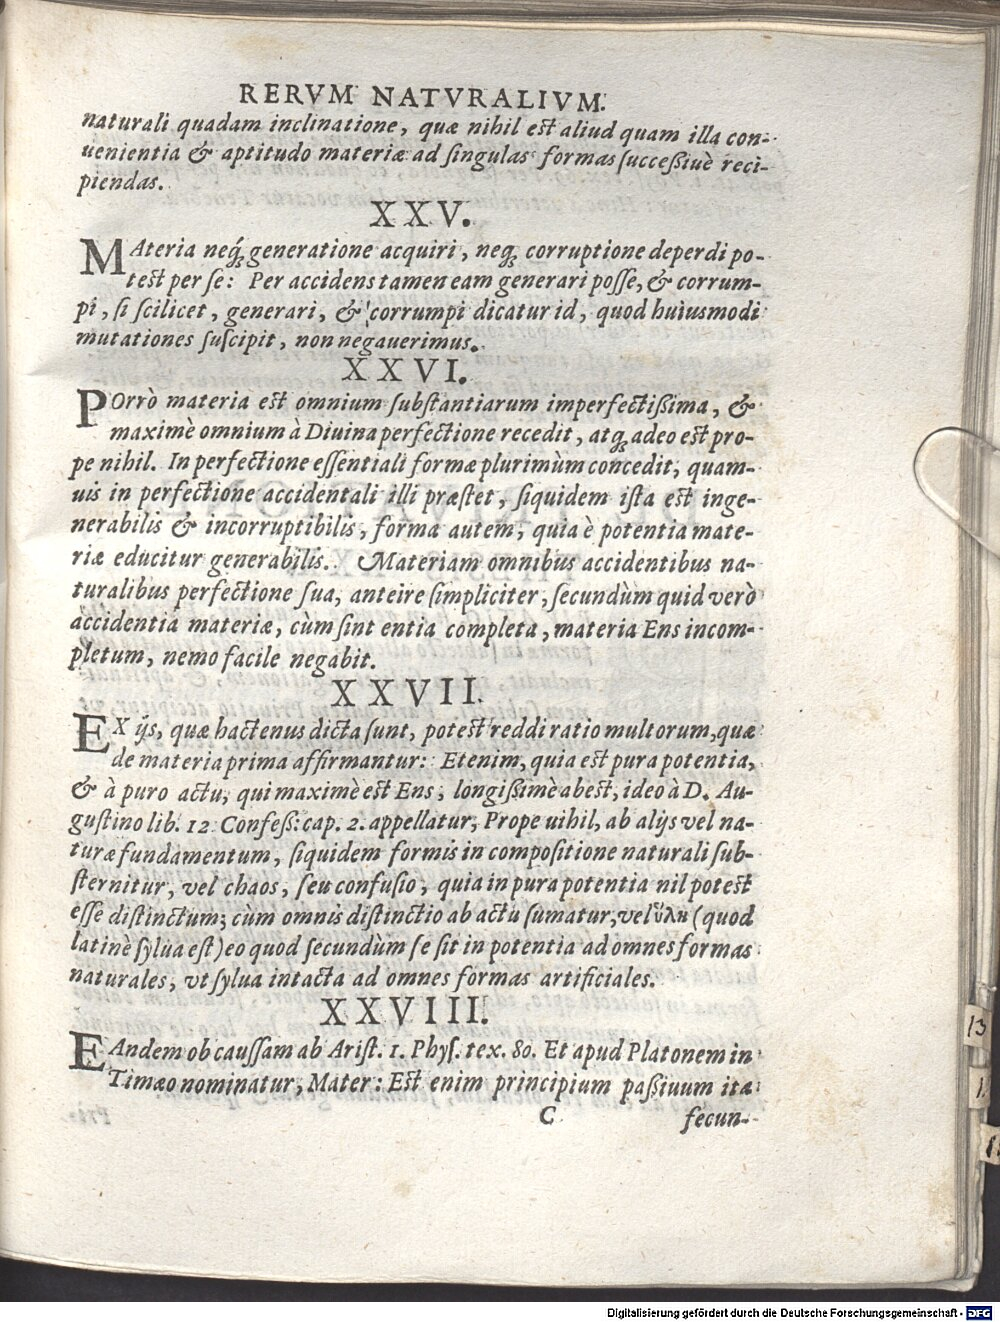 RERVM NATVRALIVM.
naturali quadam inclinatione, quæ nihil est aliud quam illa con-
uenientia & aptitudo materiæ ad ſingulas formas ſucceßiuè reci-
piendas.
XXV.
MAteria neq́; generatione acquiri, neq; corruptione deperdi po-
test per ſe: Per accidens tamen eam generari poſſe, & corrum-
pi, ſi ſcilicet, generari, & corrumpi dicatur id, quod huiusmodi
mutationes ſuſcipit, non negauerimus.
XXVI.
POrrò materia est omnium ſubſtantiarum imperfectißima, &
maximè omnium à Diuina perfectione recedit, atq; adeo est pro-
pe nihil. In perfectione eſſentiali formæ plurimùm concedit, quam-
uis in perfectione accidentali illi præſtet, ſiquidem iſta est inge-
nerabilis & incorruptibilis, forma autem, quia è potentia mate-
riæ educitur generabilis. Materiam omnibus accidentibus na-
turalibus perfectione ſua, anteire ſimpliciter, ſecundùm quid verò
accidentia materiæ, cùm ſint entia completa, materia Ens incom-
pletum, nemo facile negabit.
XXVII.
EX ijs, quæ hactenus dicta ſunt, potest reddi ratio multorum, quæ
de materia prima affirmantur: Etenim, quia est pura potentia,
& à puro actu, qui maximè est Ens, longißimè abest, ideo à D. Au-
guſtino lib. 12 Confeß: cap. 2. appellatur, Prope uihil, ab alijs vel na-
turæ fundamentum, ſiquidem formis in compoſitione naturali ſub-
ſternitur, vel chaos, ſeu confuſio, quia in pura potentia nil potest
eſſe diſtinctum; cùm omnis diſtinctio ab actu ſumatur, vel ὕλη (quod
latinè ſylua eſt) eo quod ſecundùm ſe ſit in potentia ad omnes formas
naturales, vt ſylua intacta ad omnes formas artificiales.
XXVIII.
EAndem ob cauſſam ab Ariſt. 1. Phyſ. tex. 80. Et apud Platonem in
Timæo nominatur, Mater: Est enim principium paßiuum ita
C
fecun-
13
1
Digitalisierung gefördert durch die Deutsche Forschungsgemeinschaft - DFG